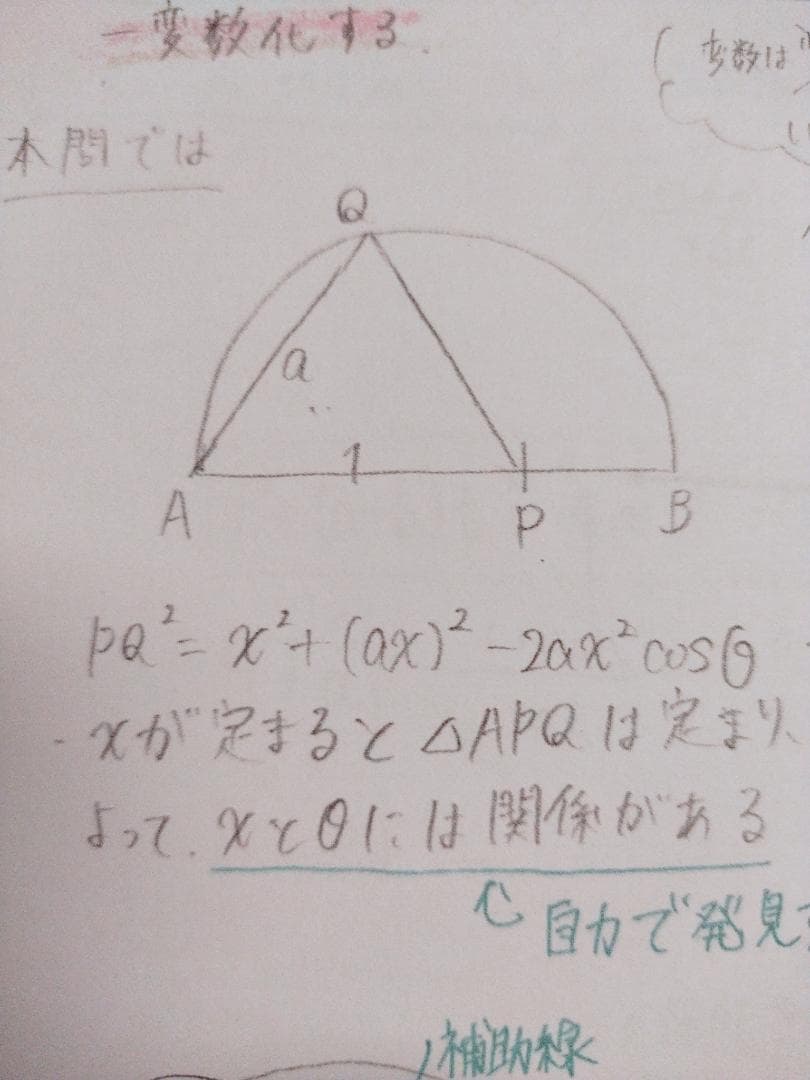 一変数化する.
変数は
本問では
Q
a
1
A P B
PQ²= x²+(ax)²-2ax²cosθ
・xが定まると△APQは定まり、
よって、xとθには関係がある
自力で発見
補助線